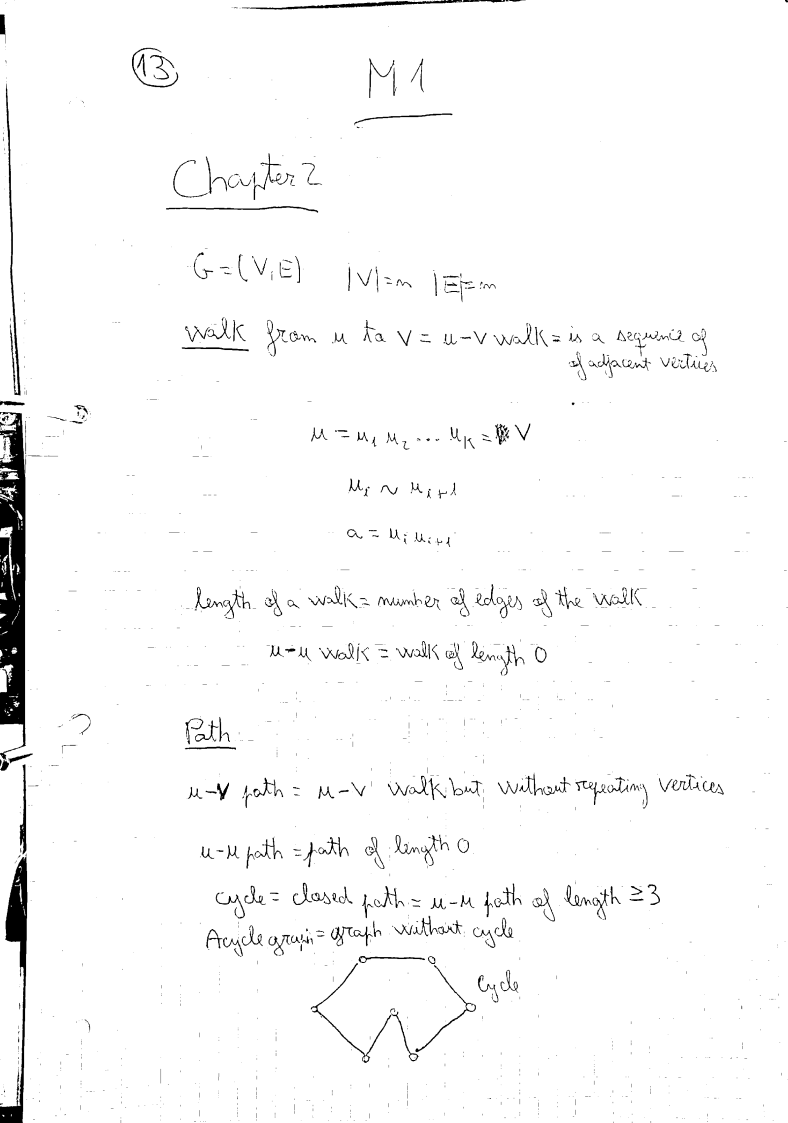 13
M1
Chapter 2
G=(V,E) |V|=n |E|=m
walk from u to v = u-v walk = is a sequence of
of adjacent vertices
u = u₁ u₂ ... uₖ = v
uᵢ ~ uᵢ₊₁
a = uᵢ uᵢ₊₁
length of a walk = number of edges of the walk
u-u walk = walk of length 0
Path
u-v path = u-v walk but without repeating vertices
u-u path = path of length 0
cycle = closed path = u-u path of length ≥3
Acycle graph = graph without cycle
Cycle